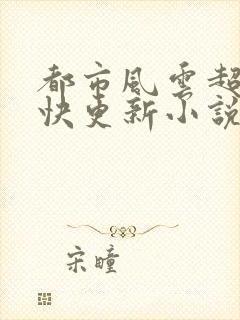 都市風雲超
快更新小說
宋瞳